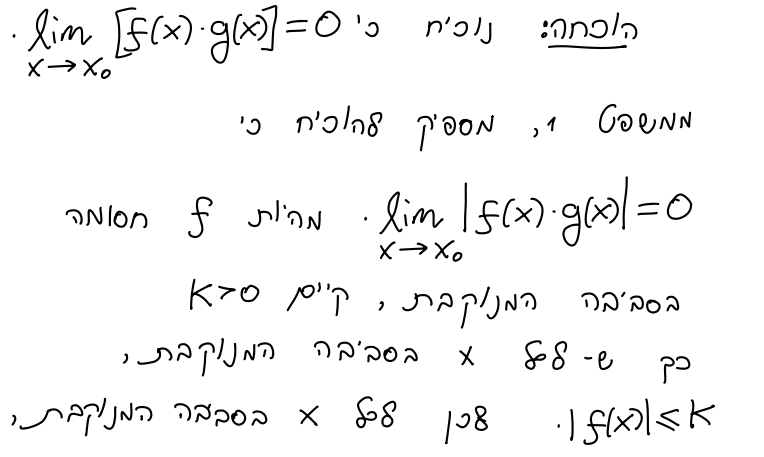 הוכחה: נוכיח כי lim x→x₀ [f(x)·g(x)]=0 .
ממשפט 1, מספיק להוכיח כי
lim x→x₀ |f(x)·g(x)|=0 . מהיות f חסומה
בסביבה המנוקבת, קיים K>0
כך ש- לכל x בסביבה המנוקבת,
|f(x)|≤K. לכן לכל x בסביבה המנוקבת,